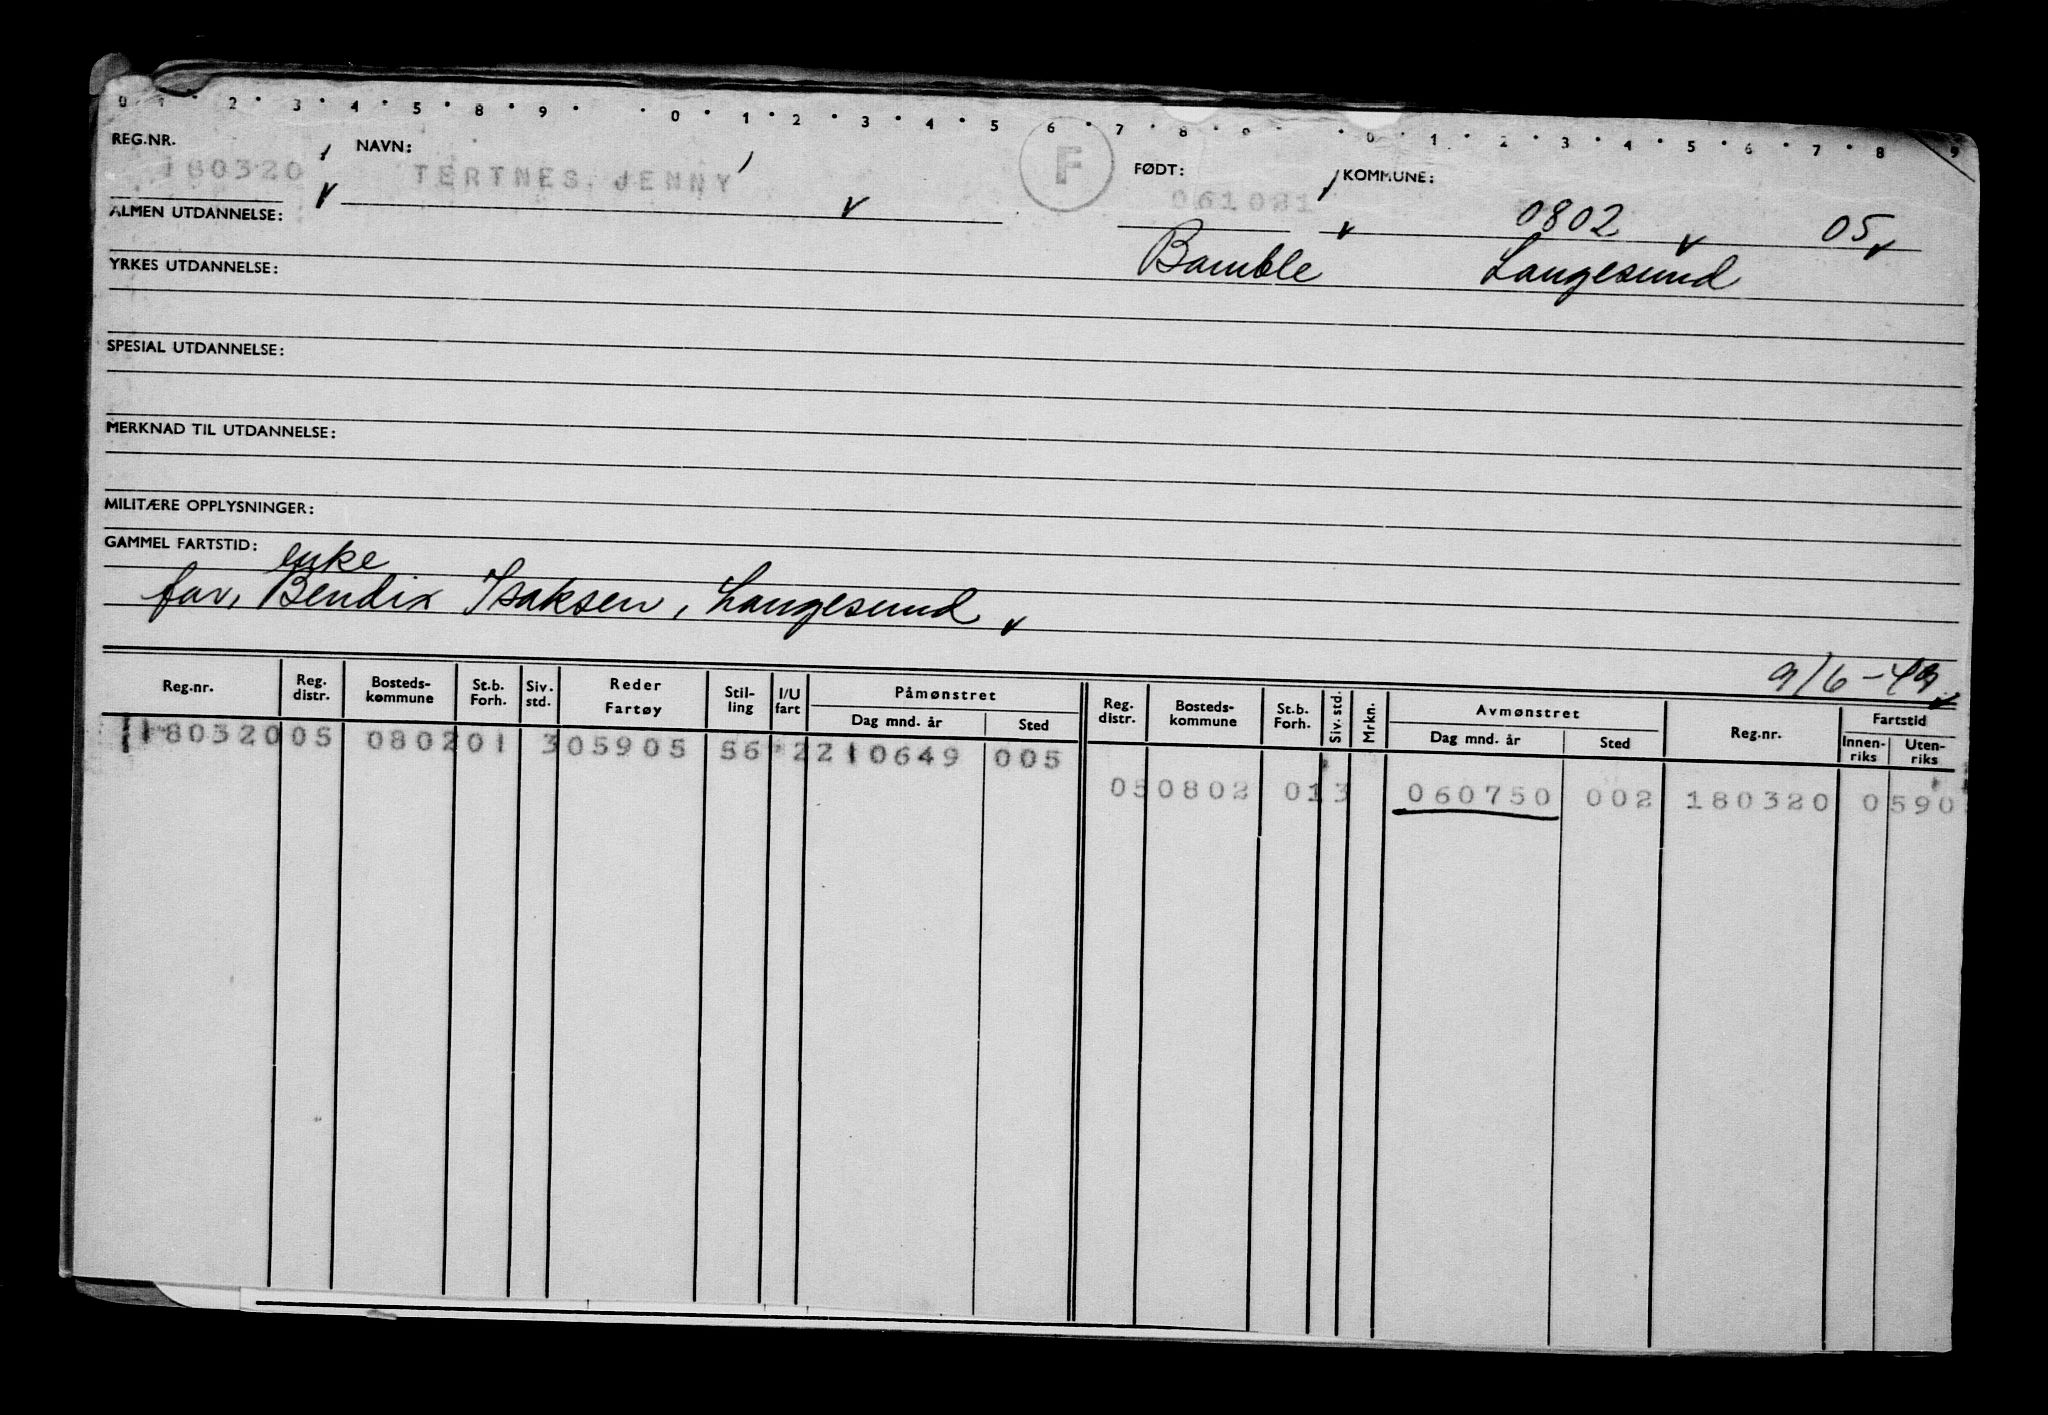 0 1 2 3 4 5 8 9 0 1 2 3 4 5 6 7 8 9 0 1 2 3 4 5 6 7 8 9
REG.NR. NAVN: F FØDT: KOMMUNE:
180320 TERTNES, JENNY 061021 0802 05
ALMEN UTDANNELSE:
Bamble Langesund
YRKES UTDANNELSE:
SPESIAL UTDANNELSE:
MERKNAD TIL UTDANNELSE:
MILITÆRE OPPLYSNINGER:
GAMMEL FARTSTID:
enke
far, Bendix Isaksen, Langesund
9/6-49
Reg.nr. Reg. distr. Bosteds- kommune St.b. Forh. Siv. std. Reder Fartøy Stil- ling I/U fart Påmønstret Dag mnd. år Sted Reg. distr. Bosteds- kommune St.b. Forh. Siv. std. Mrkn. Avmønstret Dag mnd. år Sted Reg.nr. Fartstid Innen- riks Uten- riks
180320 05 0802 01 3 05905 56 2 210649 005
05 0802 01 3 060750 002 180320 0 590